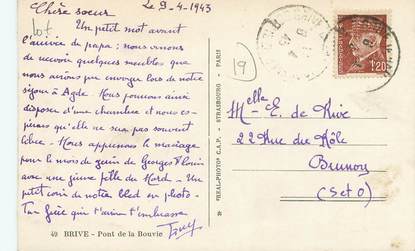 Le 9-4-1943
Chère soeur
lot
Un petit mot avant
l'arrivée de papa : nous venons
de recevoir quelques meubles que
nous avions pu envoyer lors de notre
séjour à Agde. Nous pouvons ainsi
disposer d'une chambre et nous es-
pérons qu'elle ne sera pas souvent
libre. Nous apprenons le mariage
pour le mois de juin de Georges
avec une jeune fille du Nord. Un
petit coin de notre bled en photo.
Ton frère qui t'aime t'embrasse
49 BRIVE - Pont de la Bouvie
"REAL-PHOTO" C.A.P. - STRASBOURG - PARIS
19
1F20
Melle E. de Rive
22 Rue du Rôle
Brunoy
(S et O)